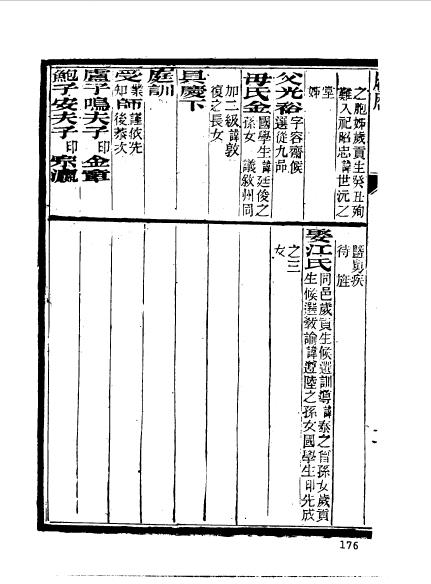 之胞姊歲貢生癸丑殉
難入祀昭忠諱世沅之
堂
姊
父光裕字容齋候
選從九品
母氏金國學生諱廷俊之
孫女 議敘州同
加二級諱敦
復之長女
具慶下
庭訓
受業師謹依先
知後恭次
盧子鳴夫子印金章
鮑子安夫子印宗瀛
醫與疾
待旌
娶江氏同邑歲貢生候選訓導諱泰之曾孫女歲貢
生候選教諭諱遵陸之孫女國學生印先成
之三
女
176